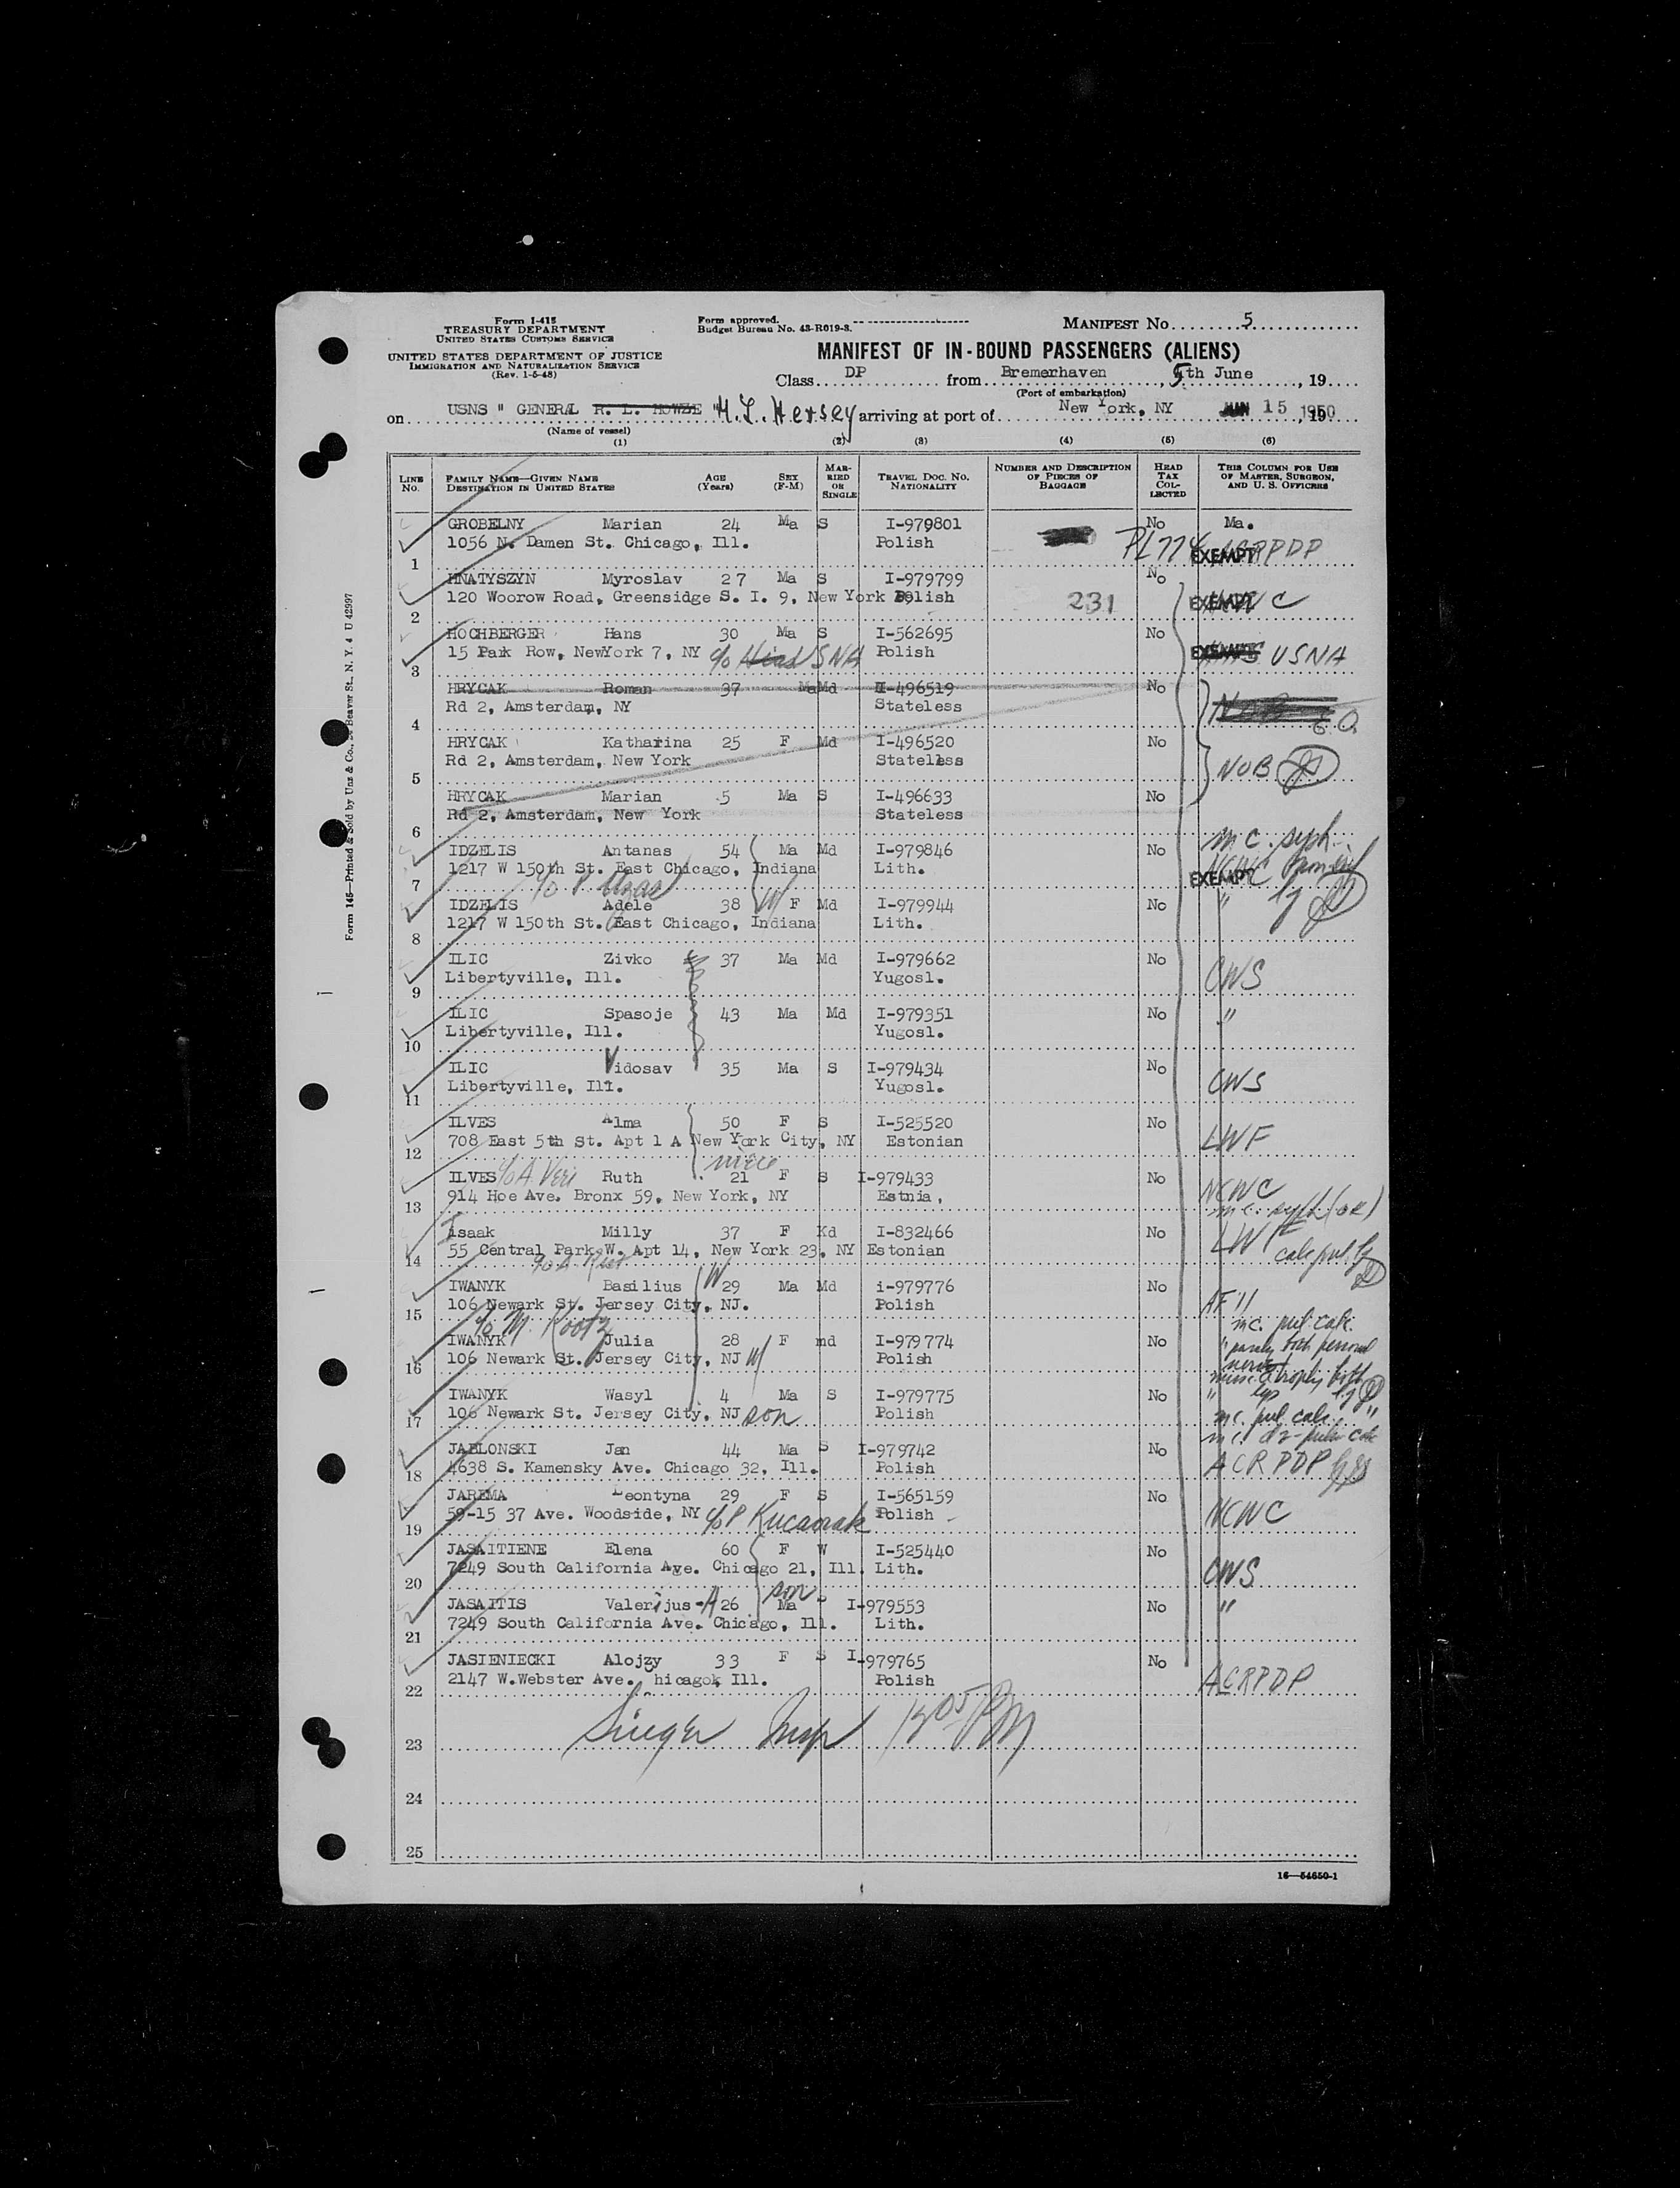 Form I-415
TREASURY DEPARTMENT
UNITED STATES CUSTOMS SERVICE
UNITED STATES DEPARTMENT OF JUSTICE
IMMIGRATION AND NATURALIZATION SERVICE
(Rev. 1-5-48)
Form approved.
Budget Bureau No. 43-R019-3.
MANIFEST No. 5
MANIFEST OF IN-BOUND PASSENGERS (ALIENS)
Class DP from Bremerhaven, 5th June, 19
(Port of embarkation)
on USNS " GENERAL R. L. HOWZE " M. L. Hersey arriving at port of New York, NY 15 1950
(Name of vessel)
(1) (2) (3) (4) (5) (6)
LINE No. FAMILY NAME—GIVEN NAME DESTINATION IN UNITED STATES AGE (Years) SEX (F-M) MARRIED OR SINGLE TRAVEL DOC. NO. NATIONALITY NUMBER AND DESCRIPTION OF PIECES OF BAGGAGE HEAD TAX COLLECTED THIS COLUMN FOR USE OF MASTER, SURGEON, AND U. S. OFFICERS
GROBELNY Marian 24 Ma S I-979801 No Ma.
1056 N. Damen St. Chicago, Ill. Polish PL774 EXEMPT ACRPDP
1
HNATYSZYN Myroslav 27 Ma S I-979799 No
120 Woorow Road, Greensidge S. I. 9, New York Polish 231 EXEMPT
2
HOCHBERGER Hans 30 Ma S I-562695 No
15 Park Row, NewYork 7, NY c/o Hias USNA Polish EXEMPT USNA
3
HRYCAK Roman 37 Ma Md I-496519 No
Rd 2, Amsterdam, NY Stateless
4
HRYCAK Katharina 25 F Md I-496520 No
Rd 2, Amsterdam, New York Stateless NOB
5
HRYCAK Marian 5 Ma S I-496633 No
Rd 2, Amsterdam, New York Stateless
6
IDZELIS Antanas 54 Ma Md I-979846 No m c. syph.
1217 W 150th St. East Chicago, Indiana Lith. NCWC
7 EXEMPT
IDZELIS Adele 38 W F Md I-979944 No "
1217 W 150th St. East Chicago, Indiana Lith.
8
ILIC Zivko 37 Ma Md I-979662 No
Libertyville, Ill. Yugosl. CWS
9
ILIC Spasoje 43 Ma Md I-979351 No "
Libertyville, Ill. Yugosl.
10
ILIC Vidosav 35 Ma S I-979434 No
Libertyville, Ill. Yugosl. CWS
11
ILVES Alma 50 F S I-525520 No
708 East 5th St. Apt 1 A New York City, NY Estonian LWF
12 niece
ILVES c/o A. Veri Ruth 21 F S I-979433 No
914 Hoe Ave. Bronx 59, New York, NY Estnia, NCWC
13 m c. syph (OR)
Isaak Milly 37 F Kd I-832466 No LWF
55 Central Park W. Apt 14, New York 23, NY Estonian
14
IWANYK Basilius W 29 Ma Md i-979776 No
106 Newark St. Jersey City, NJ. Polish
15 c/o M. mc. pul calc.
IWANYK Julia 28 F md I-979774 No
106 Newark St. Jersey City, NJ W Polish
16
IWANYK Wasyl 4 Ma S I-979775 No
106 Newark St. Jersey City, NJ son Polish mc. pul calc. "
17
JABLONSKI Jan 44 Ma S I-979742 No
4638 S. Kamensky Ave. Chicago 32, Ill. Polish ACRPDP
18
JAREMA Leontyna 29 F S I-565159 No
59-15 37 Ave. Woodside, NY c/o P Polish NCWC
19
JASAITIENE Elena 60 F W I-525440 No
7249 South California Ave. Chicago 21, Ill. Lith. CWS
20 son
JASAITIS Valerijus-A 26 Ma " I-979553 No "
7249 South California Ave. Chicago, Ill. Lith.
21
JASIENIECKI Alojzy 33 F S I-979765 No
2147 W.Webster Ave. Chicago, Ill. Polish ACRPDP
22
Singer Insp
23
24
25
16—54650-1
Form 145—Printed & Sold by Unz & Co., Beaver St., N. Y. 4 U 42997